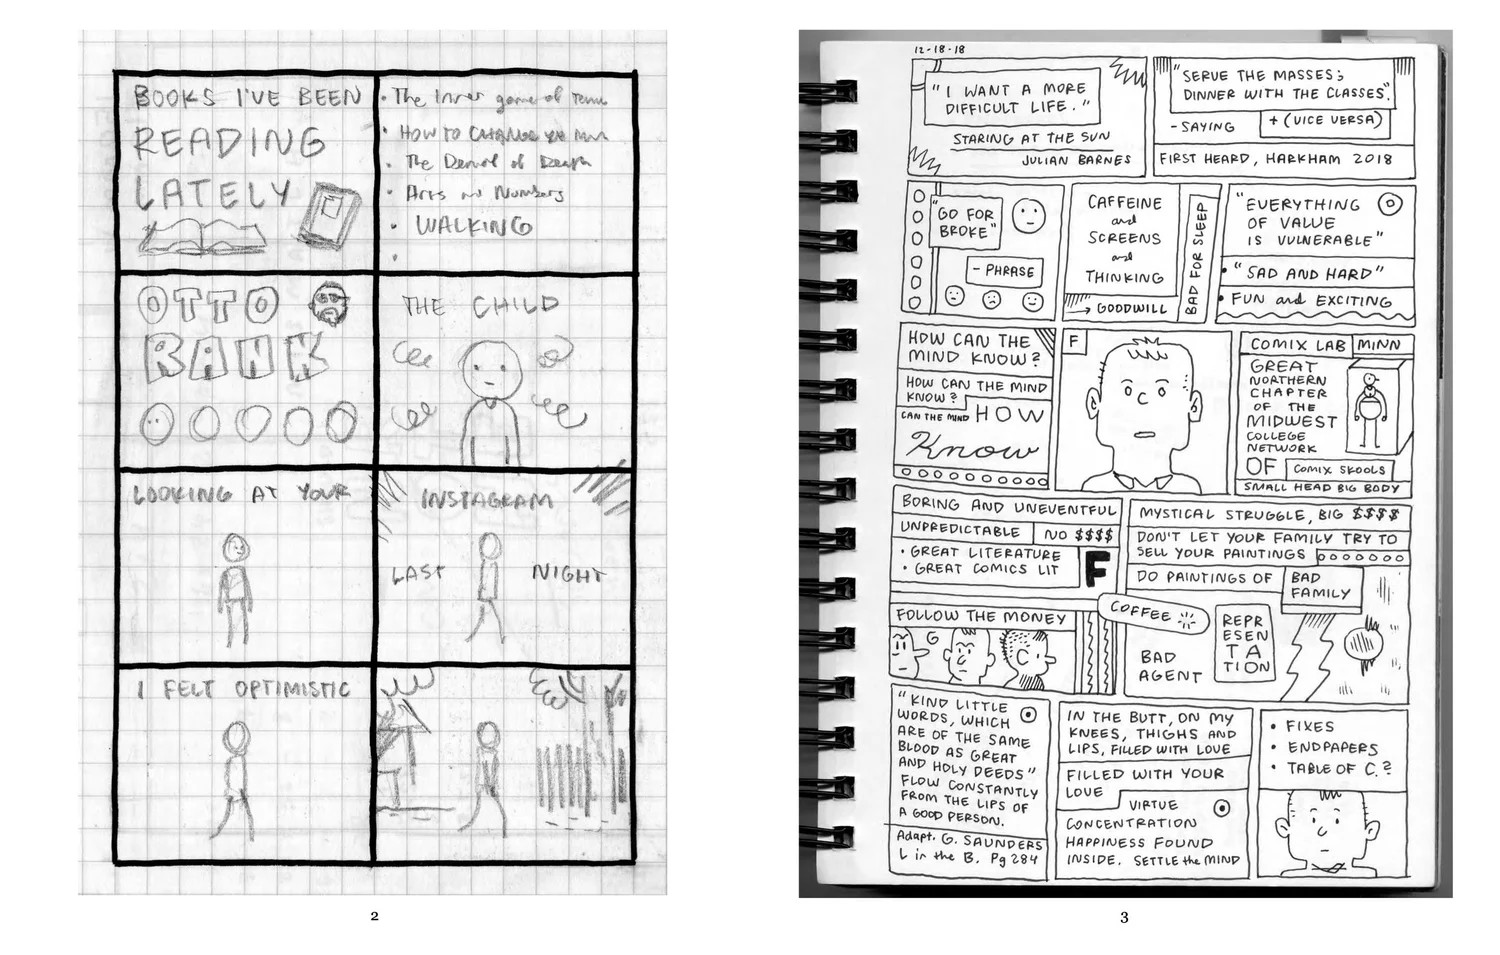 BOOKS I'VE BEEN
READING
LATELY
• The Inner game of Tennis
• HOW TO CHANGE
• The Denial of Death
• Arts and Numbers
• WALKING
•
OTTO
RANK
THE CHILD
LOOKING AT YOUR
INSTAGRAM
LAST NIGHT
I FELT OPTIMISTIC
2
12-18-18
"I WANT A MORE
DIFFICULT LIFE."
STARING AT THE SUN
JULIAN BARNES
"SERVE THE MASSES;
DINNER WITH THE CLASSES".
+ (VICE VERSA)
- SAYING
FIRST HEARD, HARKHAM 2018
"GO FOR
BROKE"
- PHRASE
CAFFEINE
and
SCREENS
and
THINKING
→ GOODWILL
BAD FOR SLEEP
"EVERYTHING
OF VALUE
IS VULNERABLE"
• "SAD AND HARD"
• FUN and EXCITING
HOW CAN THE
MIND KNOW?
HOW CAN THE MIND
KNOW?
CAN THE MIND HOW
Know
F
COMIX LAB MINN
GREAT
NORTHERN
CHAPTER
OF THE
MIDWEST
COLLEGE
NETWORK
OF COMIX SKOOLS
SMALL HEAD BIG BODY
BORING AND UNEVENTFUL
UNPREDICTABLE NO $$$$
• GREAT LITERATURE
• GREAT COMICS LIT
F
MYSTICAL STRUGGLE, BIG $$$$
DON'T LET YOUR FAMILY TRY TO
SELL YOUR PAINTINGS
DO PAINTINGS OF BAD
FAMILY
COFFEE
REPR
ESEN
TA
TION
BAD
AGENT
FOLLOW THE MONEY
G
"KIND LITTLE
WORDS, WHICH
ARE OF THE SAME
BLOOD AS GREAT
AND HOLY DEEDS"
FLOW CONSTANTLY
FROM THE LIPS OF
A GOOD PERSON.
Adapt. G. SAUNDERS
L in the B. Pg 284
IN THE BUTT, ON MY
KNEES, THIGHS AND
LIPS, FILLED WITH LOVE
FILLED WITH YOUR
LOVE
VIRTUE
CONCENTRATION
HAPPINESS FOUND
INSIDE. SETTLE the MIND
• FIXES
• ENDPAPERS
• TABLE OF C.?
3